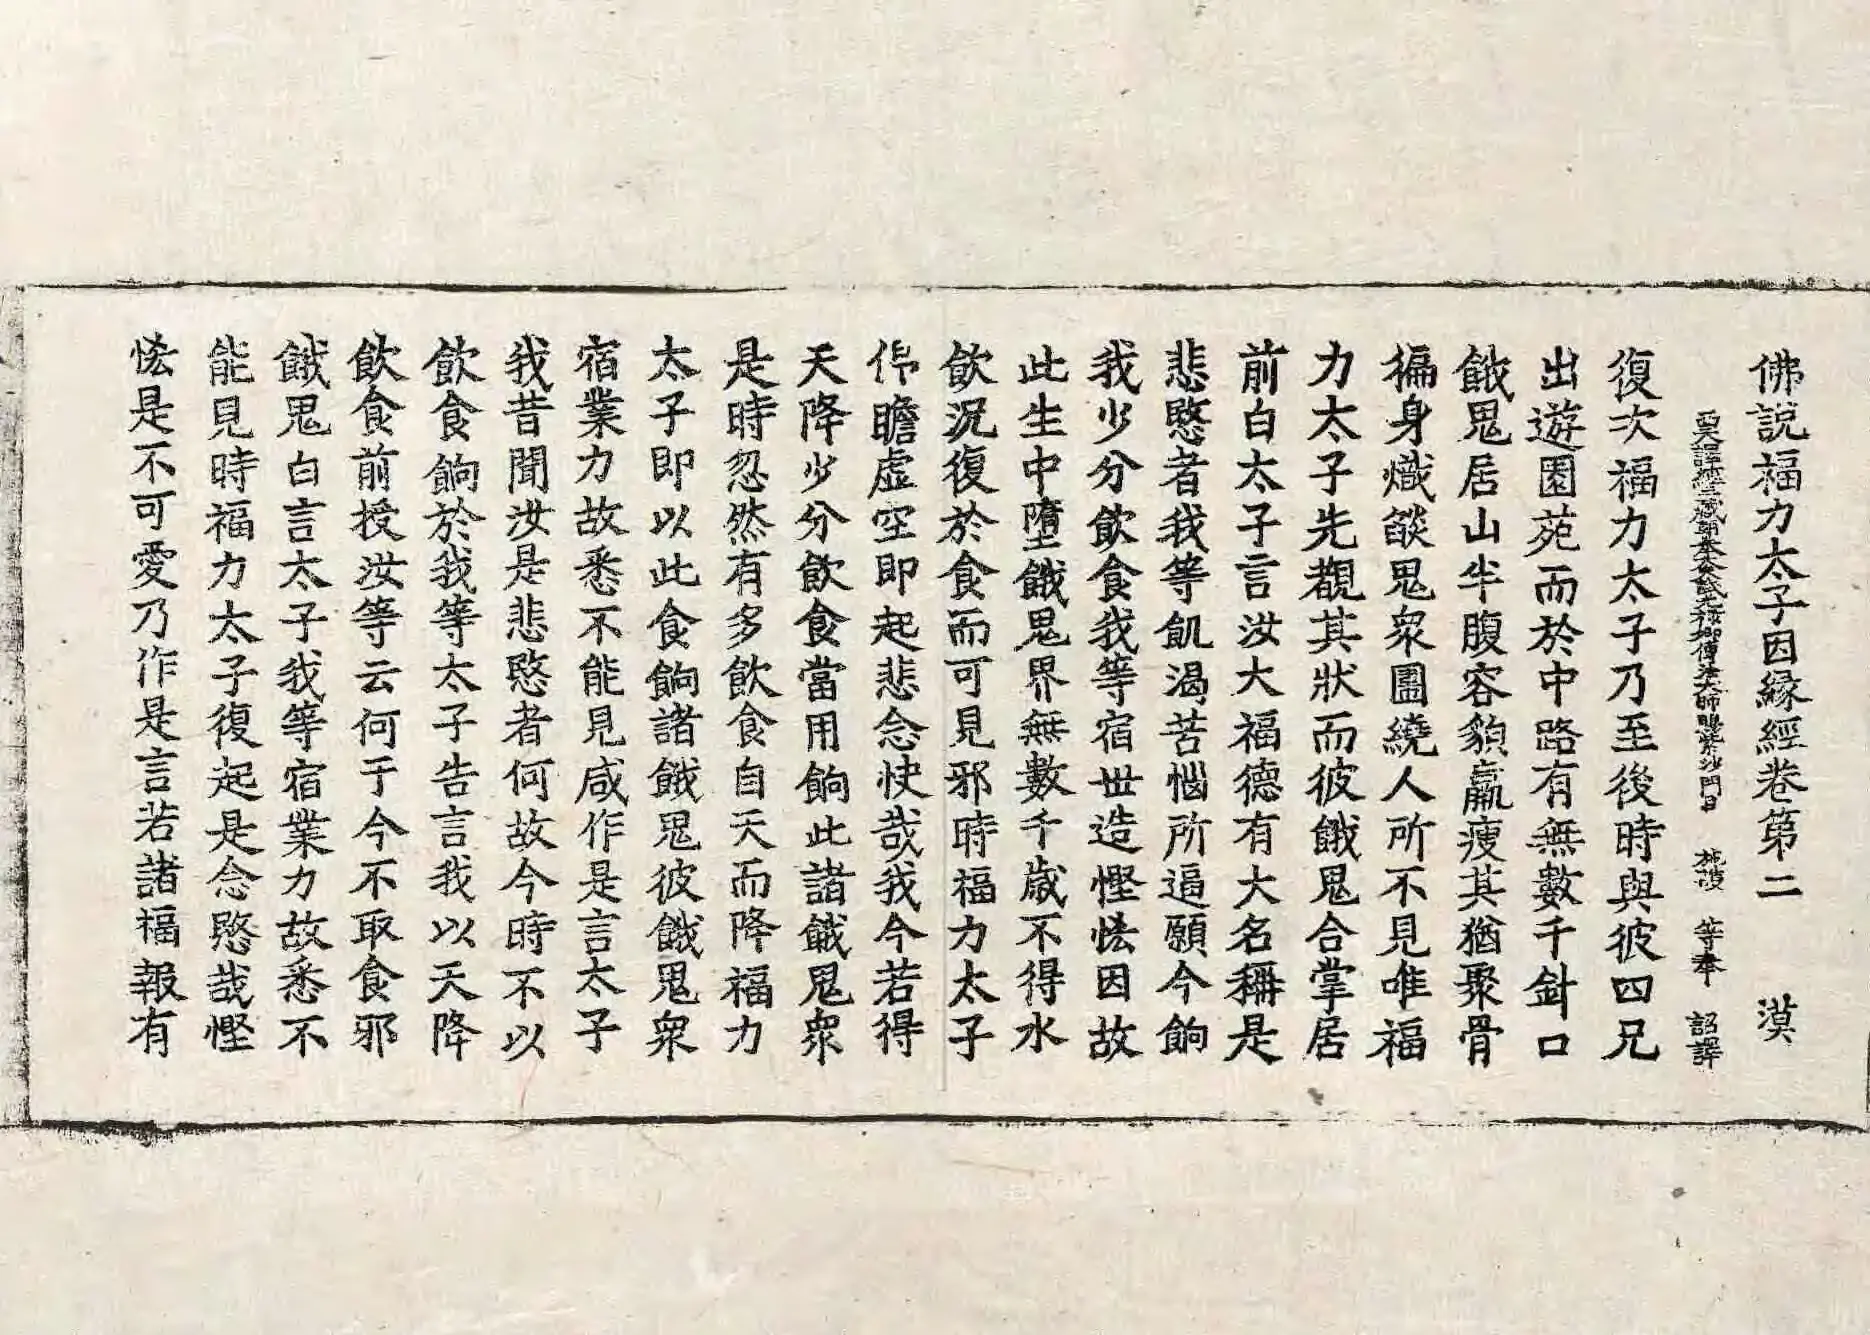 佛說福力太子因緣經卷第二 漠
西天譯經三藏朝奉大夫試光祿卿傳法大師賜紫沙門臣 施護 等奉 詔譯
復次福力太子乃至後時與彼四兄
出遊園苑而於中路有無數千針口
餓鬼居山半腹容䫉羸瘦其猶聚骨
徧身熾𦦨鬼衆圍繞人所不見唯福
力太子先覩其狀而彼餓鬼合掌居
前白太子言汝大福德有大名稱是
悲愍者我等飢渴苦惱所逼願今餉
我少分飲食我等宿世造慳悋因故
此生中墮餓鬼界無數千歲不得水
飲況復於食而可見邪時福力太子
仰瞻虛空即起悲念快哉我今若得
天降少分飲食當用餉此諸餓鬼衆
是時忽然有多飲食自天而降福力
太子即以此食餉諸餓鬼彼餓鬼衆
宿業力故悉不能見咸作是言太子
我昔聞汝是悲愍者何故今時不以
飲食餉於我等太子告言我以天降
飲食前授汝等云何于今不取食邪
餓鬼白言太子我等宿業力故悉不
能見時福力太子復起是念愍哉慳
悋是不可愛乃作是言若諸福報有